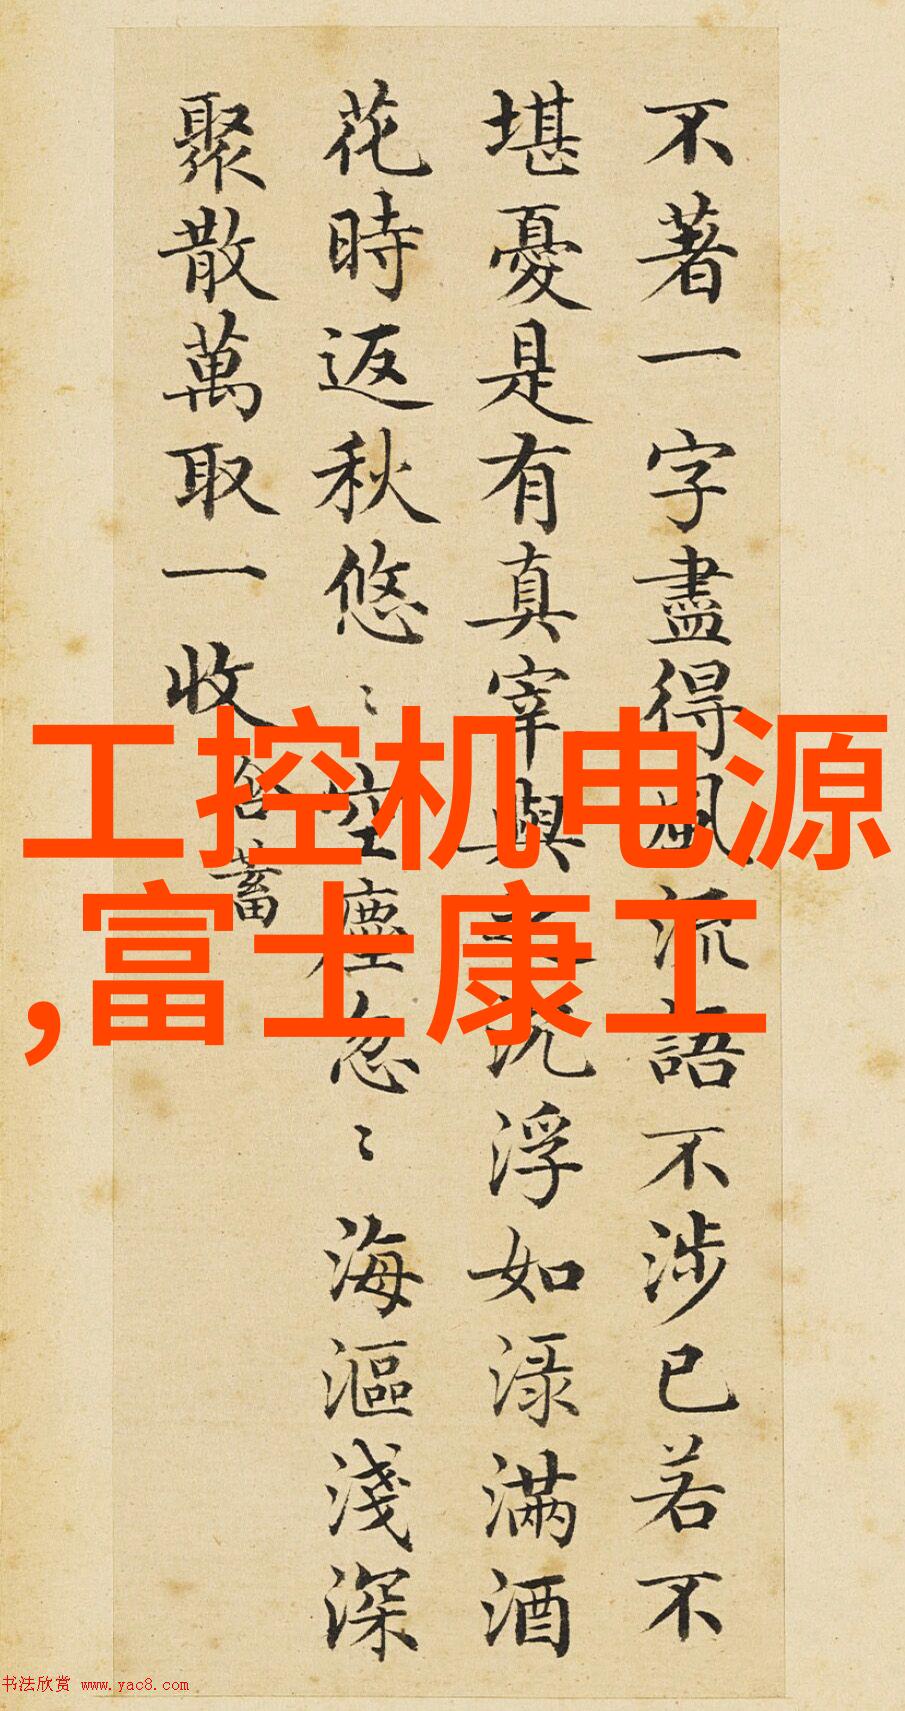 不著一字盡得風流語不涉已若不
堪憂是有真宰與之沉浮如渌滿酒
花時返秋悠〻空塵忽〻海漚淺深
聚散萬取一收 含蓄
工控机电源
,富士康工
书法欣赏 www.yac8.com